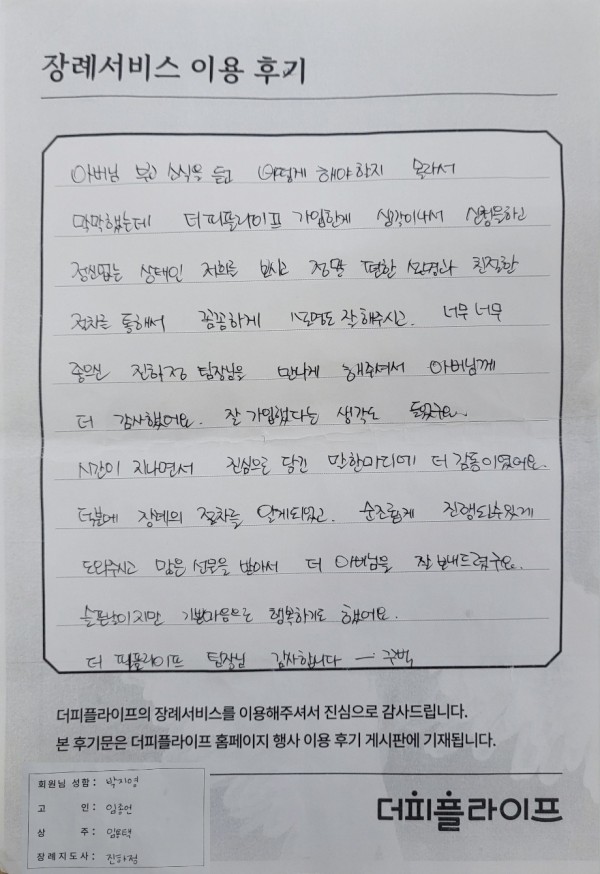 장례서비스 이용 후기
아버님 부고 소식을 듣고 어떻게 해야할지 몰라서
막막했는데 더피플라이프 가입한게 생각이나서 신청을하고
정신없는 상태인 저희를 보시고 정말 편한 환경과 친절한
절차를 통해서 꼼꼼하게 설명도 잘해주시고. 너무 너무
좋으신 진하정 팀장님을 만나게 해주셔서 아버님께
더 감사했어요. 잘 가입했다는 생각도 들었구요.
시간이 지나면서 진심으로 담긴 말한마디에 더 감동이였어요.
덕분에 장례의 절차를 알게되었고. 순조롭게 진행될수있게
도와주시고 많은 선물을 받아서 더 아버님을 잘 보내드렸구요.
슬픈날이지만 기쁜마음으로 행복하기도 했어요.
더 피플라이프 팀장님 감사합니다 — 구벅
더피플라이프의 장례서비스를 이용해주셔서 진심으로 감사드립니다.
본 후기문은 더피플라이프 홈페이지 행사 이용 후기 게시판에 기재됩니다.
회원님 성함 : 박지영
고 인 : 임종언
상 주 :
장례지도사 : 진하정
더피플라이프